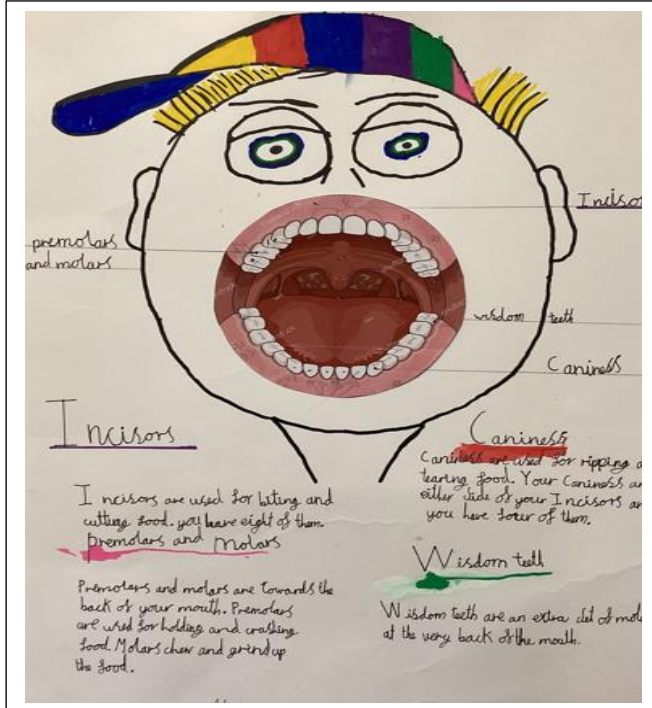 Incisor
premolars
and molars
wisdom teeth
Caniness
Incisors
Incisors are used for biting and
cutting food. you have eight of them.
premolars and molars
Premolars and molars are towards the
back of your mouth. Premolars
are used for holding and crashing
food. Molars chew and grind up
the food.
Caniness
Caniness are used for ripping a
tearing food. Your Caniness a
either side of your Incisors an
you have four of them.
Wisdom teeth
Wisdom teeth are an extra set of mol
at the very back of the mouth.